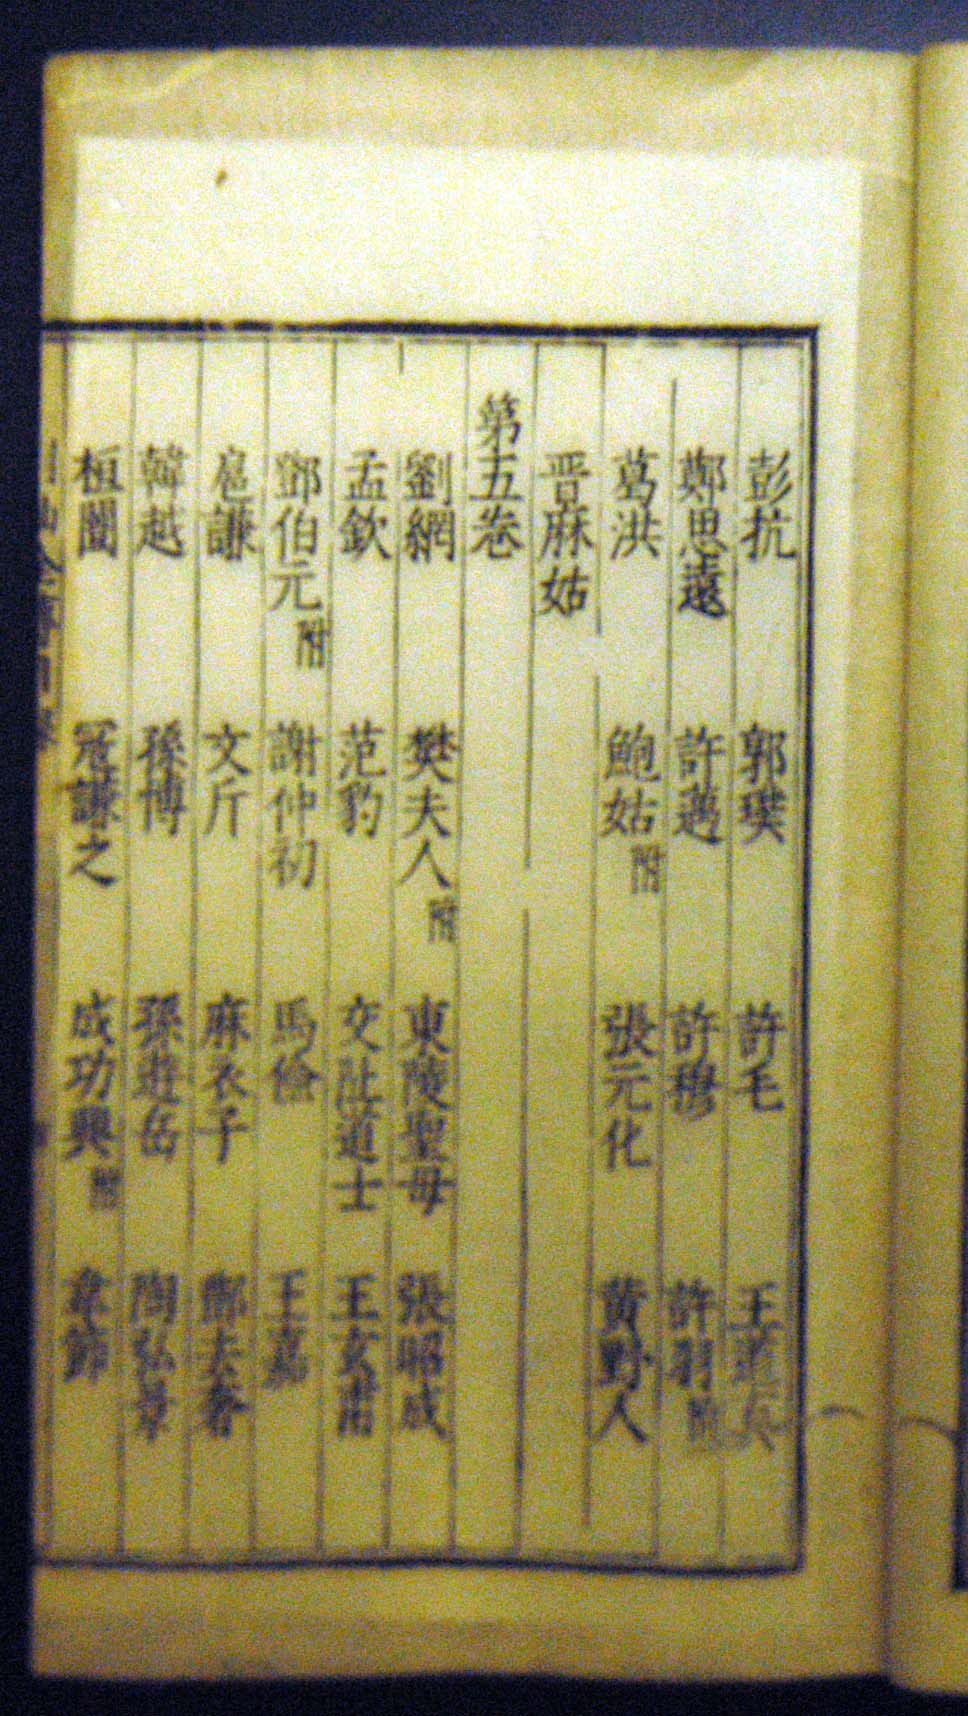 彭抗 郭璞 許毛 王道真
鄭思遠 許邁 許穆 許羽附
葛洪 鮑姑附 張元化 黃野人
晋麻姑
第五卷
劉綱 樊夫人附 東陵聖母 張昭成
孟欽 范豹 交趾道士 王玄甫
鄧伯元附 謝仲初 馬儉 王嘉
扈謙 文斤 麻衣子 鄧去奢
韓越 孫博 孫遊岳 陶弘景
桓闓 冦謙之 成功興附 韋節